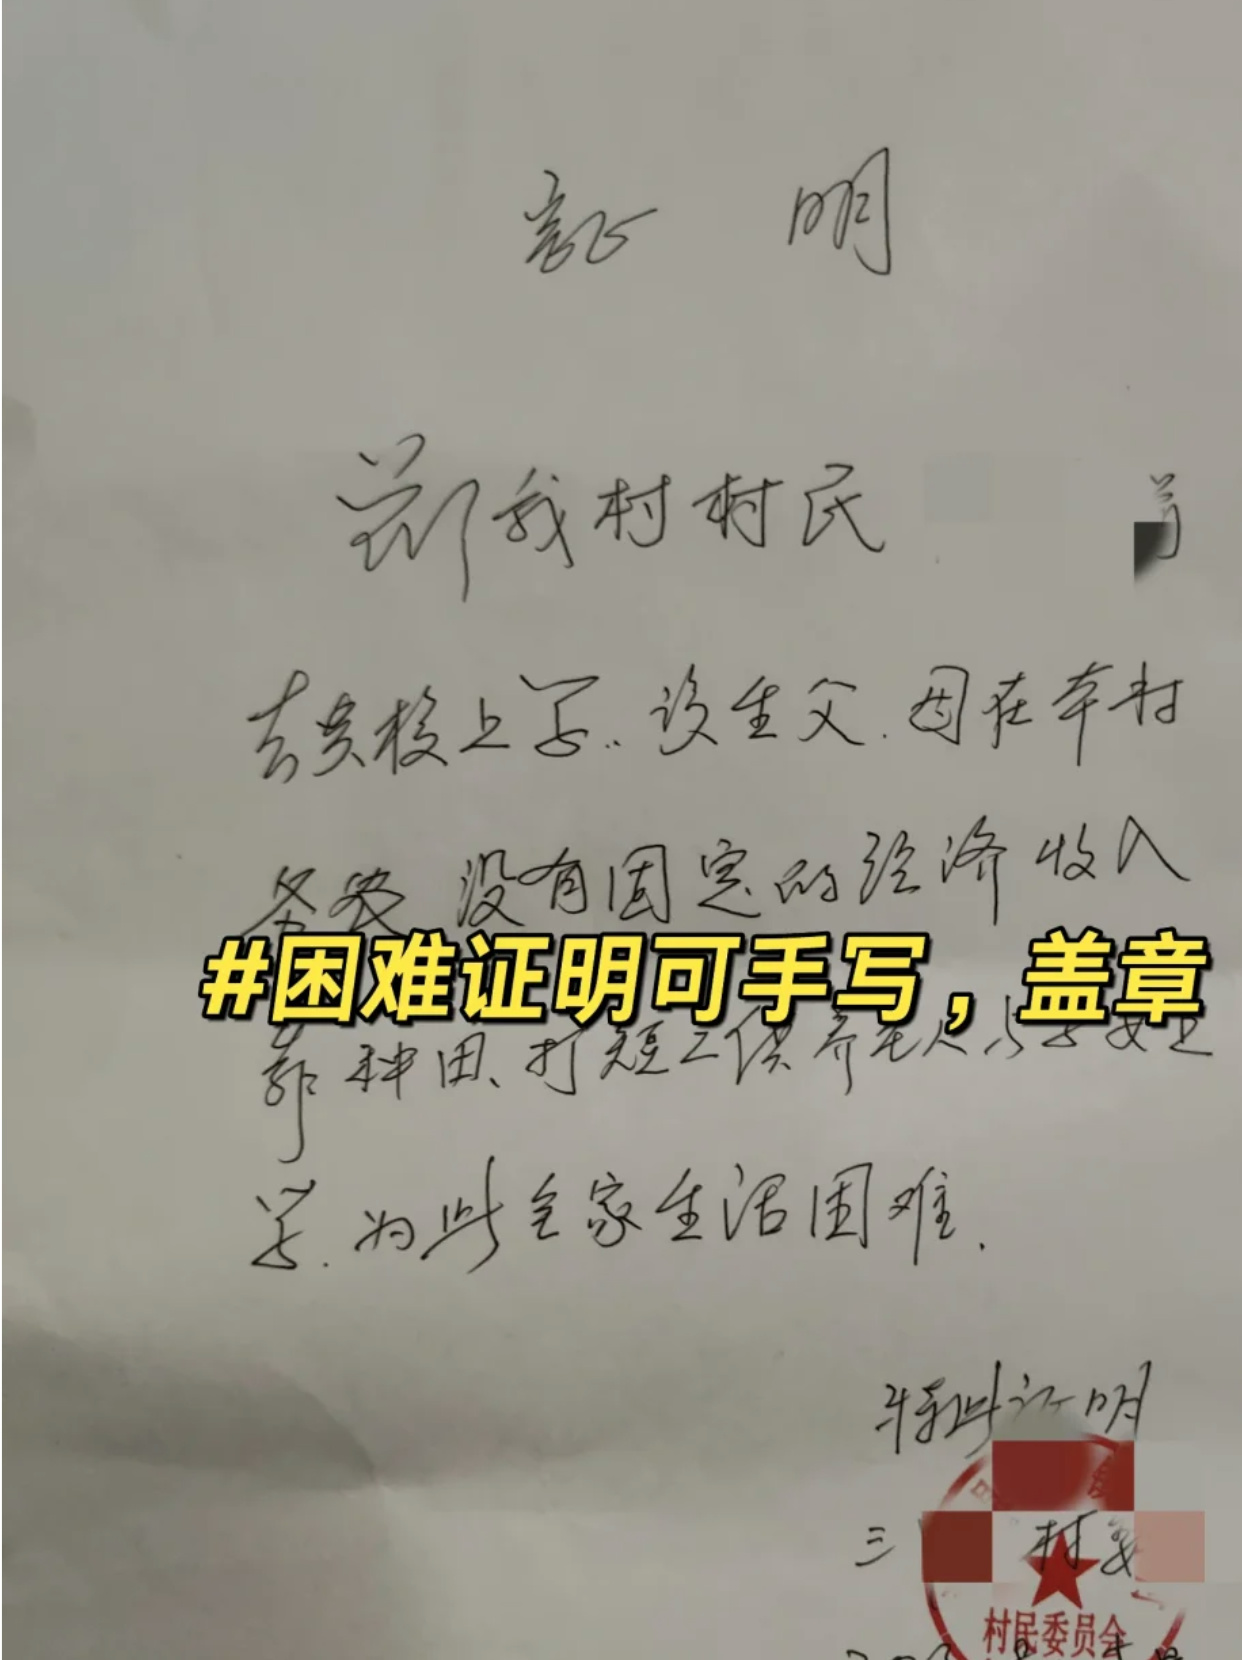 证 明
兹我村村民
去贵校上学. 该生父. 因在本村
务农 没有固定的经济收入
#困难证明可手写，盖章
靠种田、打短工供养老人与子女上
学. 为此全家生活困难.
特此证明
三 村委
村民委员会